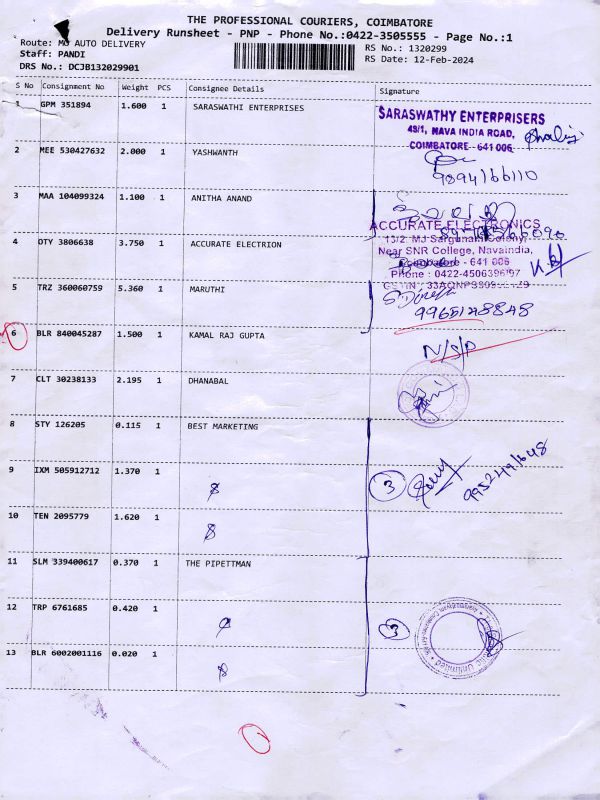 THE PROFESSIONAL COURIERS, COIMBATORE
Delivery Runsheet - PNP - Phone No.:0422-3505555 - Page No.:1
Route: MO AUTO DELIVERY
RS No.: 1320299
Staff: PANDI
RS Date: 12-Feb-2024
DRS No.: DCJB132029901
S No Consignment No Weight PCS Consignee Details Signature
1 GPM 351894 1.600 1 SARASWATHI ENTERPRISES
SARASWATHY ENTERPRISERS
49/1, NAVA INDIA ROAD,
COIMBATORE - 641 006
2 MEE 530427632 2.000 1 YASHWANTH
9894166110
3 MAA 104099324 1.100 1 ANITHA ANAND
4 OTY 3806638 3.750 1 ACCURATE ELECTRION
ACCURATE ELECTRONICS
13/2, MJ Sargunam Colony,
Near SNR College, Navaindia,
Coimbatore - 641 006
Phone : 0422-4506396/97
5 TRZ 360060759 5.360 1 MARUTHI
9965148848
6 BLR 840045287 1.500 1 KAMAL RAJ GUPTA
N/S/P
7 CLT 30238133 2.195 1 DHANABAL
8 STY 126205 0.115 1 BEST MARKETING
9 IXM 505912712 1.370 1
3
9952491648
10 TEN 2095779 1.620 1
11 SLM 339400617 0.370 1 THE PIPETTMAN
12 TRP 6761685 0.420 1
3
13 BLR 6002001116 0.020 1